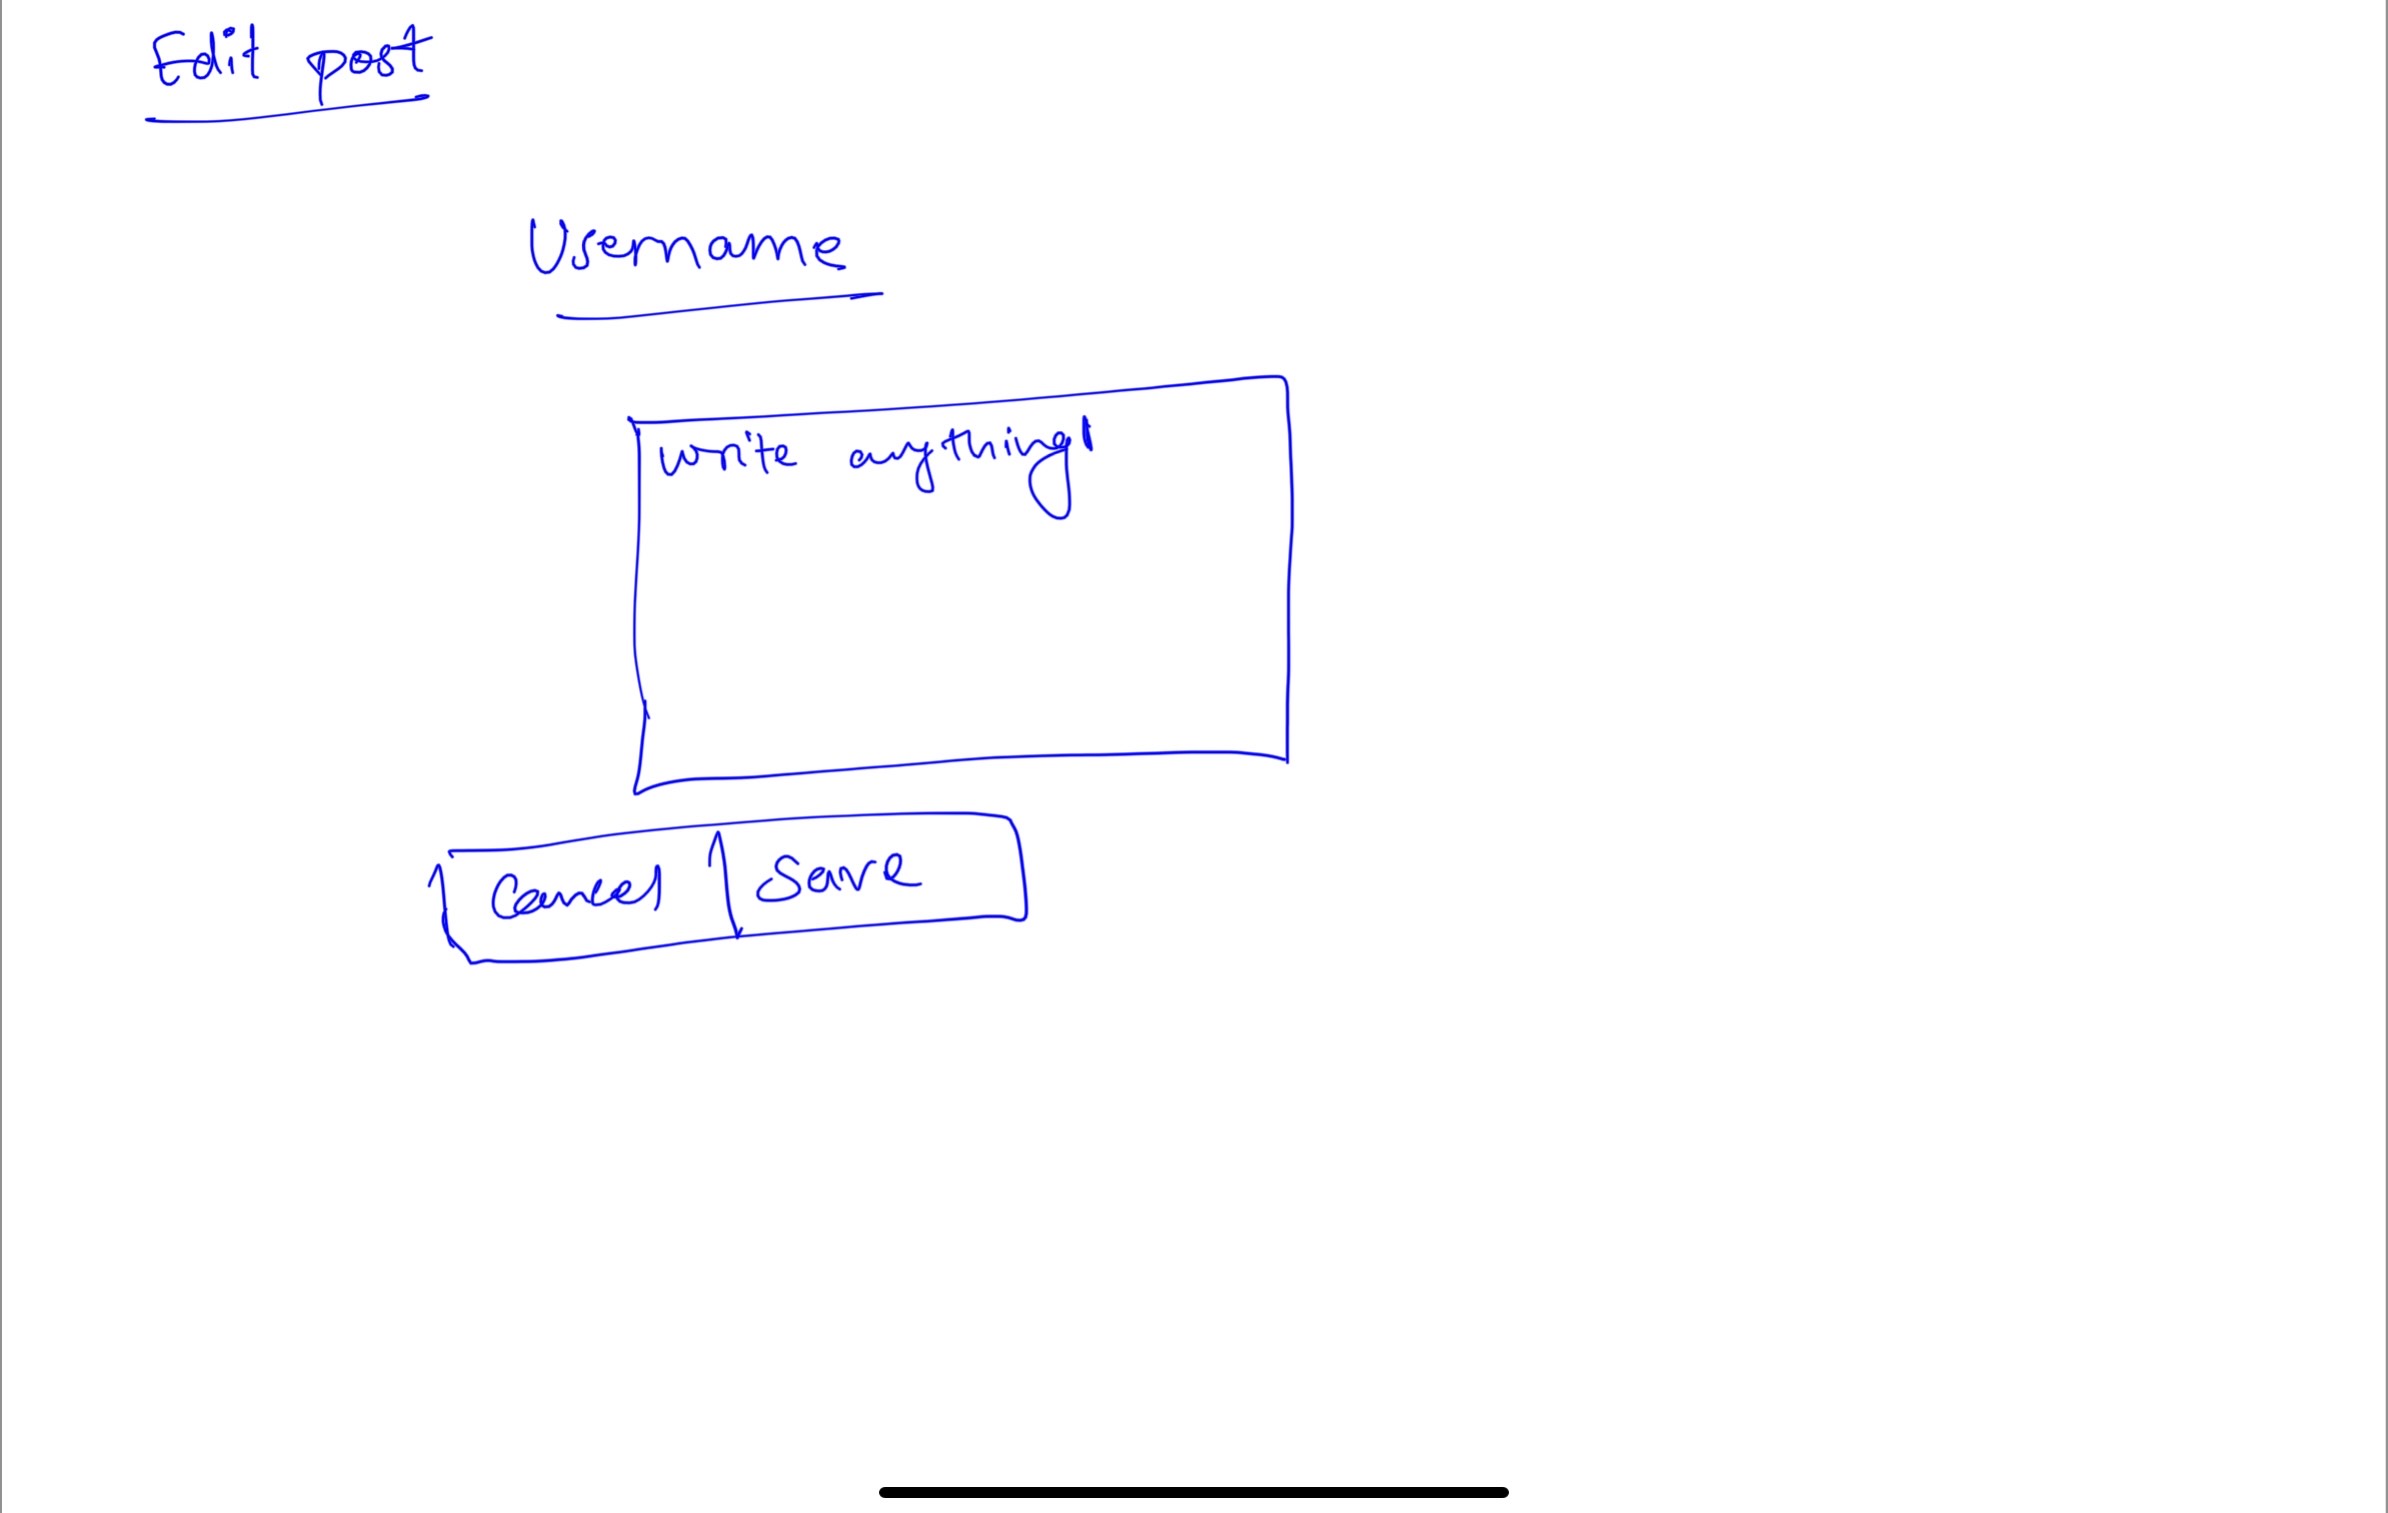 Edit post
Username
write anything
Cancel Save